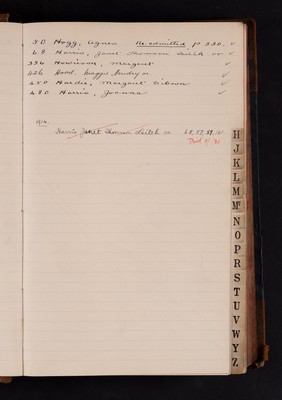 30 Hogg, Agnes Re-admitted p 330. ✓
68 Harris, Janet Thomson Leitch or ✓
336 Howieson, Margaret ✓
426 Hood, Maggie or ✓
450 Hardie, Margaret Gibson ✓
480 Harris, Joanna ✓
1914.
Harris Janet Thomson Leitch or 68, 83,
Died
H
J
K
L
M
Mc
N
O
P
R
S
T
U
V
W
Y
Z